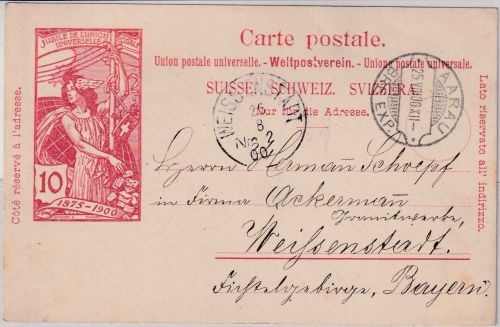 JUBILÉ DE L'UNION
UNIVERSELLE
10
1875-1900
Côté réservé à l'adresse.
Carte postale.
Union postale universelle. - Weltpostverein. - Unione postale universale.
SUISSE. SCHWEIZ. SVIZZERA.
Nur für die Adresse.
Lato riservato all' indirizzo.
WEISSENSTADT
26
8
Nm. 2
00
AARAU
25.VIII.00.XII-
EXP.
Herrn Hermann Schoepf
in Firma Ackermann
Granitwerke,
Weissenstadt.
Fichtelgebirge, Bayern.